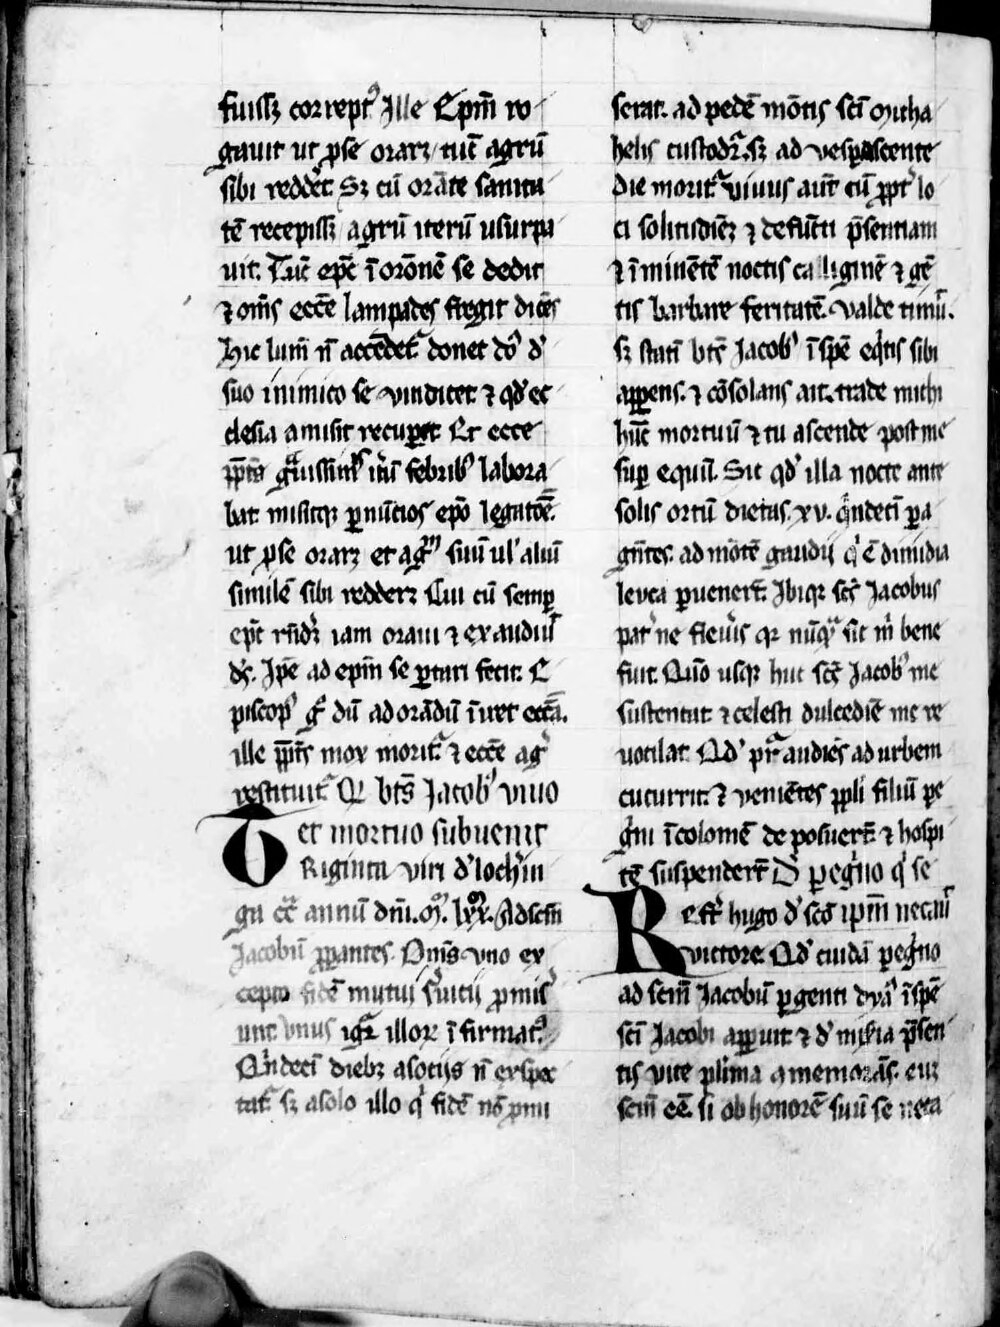 fuissꝫ correptꝰ Ille Ep̄m ro
gauit ut ꝓ se orarꝫ tūc agrū
sibi reddet̄ Sꝫ cū orāte sanita
tē recepissꝫ agrū iterū usurpa
uit. Tūc ep̄c ī orōnē se dedit
⁊ om̄s ecc̄e lampades fregit dicēs
Hic lum̄ n̄ accēdet᷑ donec dꝰ d'
suo inimico se vindicet ⁊ qd' ec
clesia amisit recuꝑet Et ecce
febribꝰ labora
bat misitqꝫ ꝑ nūcios ep̄o legatōe.
ut ꝓ se orarꝫ et agrū suū ul' aliū
similē sibi redderꝫ Cui cū semꝑ
ep̄c rn̄dꝫ iam oraui ⁊ exaudiuit
dꝰ. Ip̄e ad ep̄m se portari fecit. E
piscopꝰ g̊ dū ad orādū ī uet ecc̄a.
ille mox morit᷑ ⁊ ecc̄e ag̊
restituit᷑ Q bt̄s Jacobꝰ viuo
et mortuo subuenit
Triginta viri d' lotharin
gia cc̄ annū dn̄i. M̊. lxx̊. Ad sc̄m
Jacobū ꝓꝑantes. Om̄s vno ex
cepto fidē mutui s'uitij ꝓmis
unt vnus igr᷑ illoꝝ īfirmat᷑.
Q'ndeci diebꝫ a sotijs n̄ exspec
tat᷑ sꝫ a solo illo q' fidē nō ꝓmi
serat. ad pedē mōtis sc̄i Micha
helis custodr᷑. sꝫ ad vesꝑascente
die morit᷑ viuus aut̄ cū ꝓpt' lo
ci solitudiēꝫ ⁊ defūcti p̄sentiam
⁊ īminētē noctis caliginē ⁊ gē
tis barbare feritatē. valde timuit.
sꝫ stati bt̄s Jacobꝰ ī spē eq'tis sibi
apparens. ⁊ cōsolans ait. trade michi
hūc mortuū ⁊ tu ascende post me
suꝑ equū. Sic qd' illa nocte ante
solis ortū dietas. xv. q'ndeci ꝑa
gn̄tes. ad mōtē gaudij q' ē dimidia
leuca ꝑuenert̄. Ibiqꝫ sc̄s Jacobus
bene
fuit. usqꝫ huc sc̄s Jacobꝰ me
sustentat ⁊ celesti dulcediē me re
uocilat. Qd' pr᷑ audiēs ad urbem
cucurrit. ⁊ veniētes ppl'i filiū pe
g'ni īcolomē deposuert̄ ⁊ hospi
tē suspendert̄ D' peg'no q' se
Refr᷑ hugo d' sc̄o ipm̄ necauit
victore. Qd' cuidā peg'no
ad sc̄m Jacobū ꝑgenti dyaꝰ ī spē
sc̄i Jacobi apparuit ⁊ d' mis'ia p̄sen
tis vite pl'ima memorās. eūꝫ
sem̄ eē. si ob honorē suū se neca